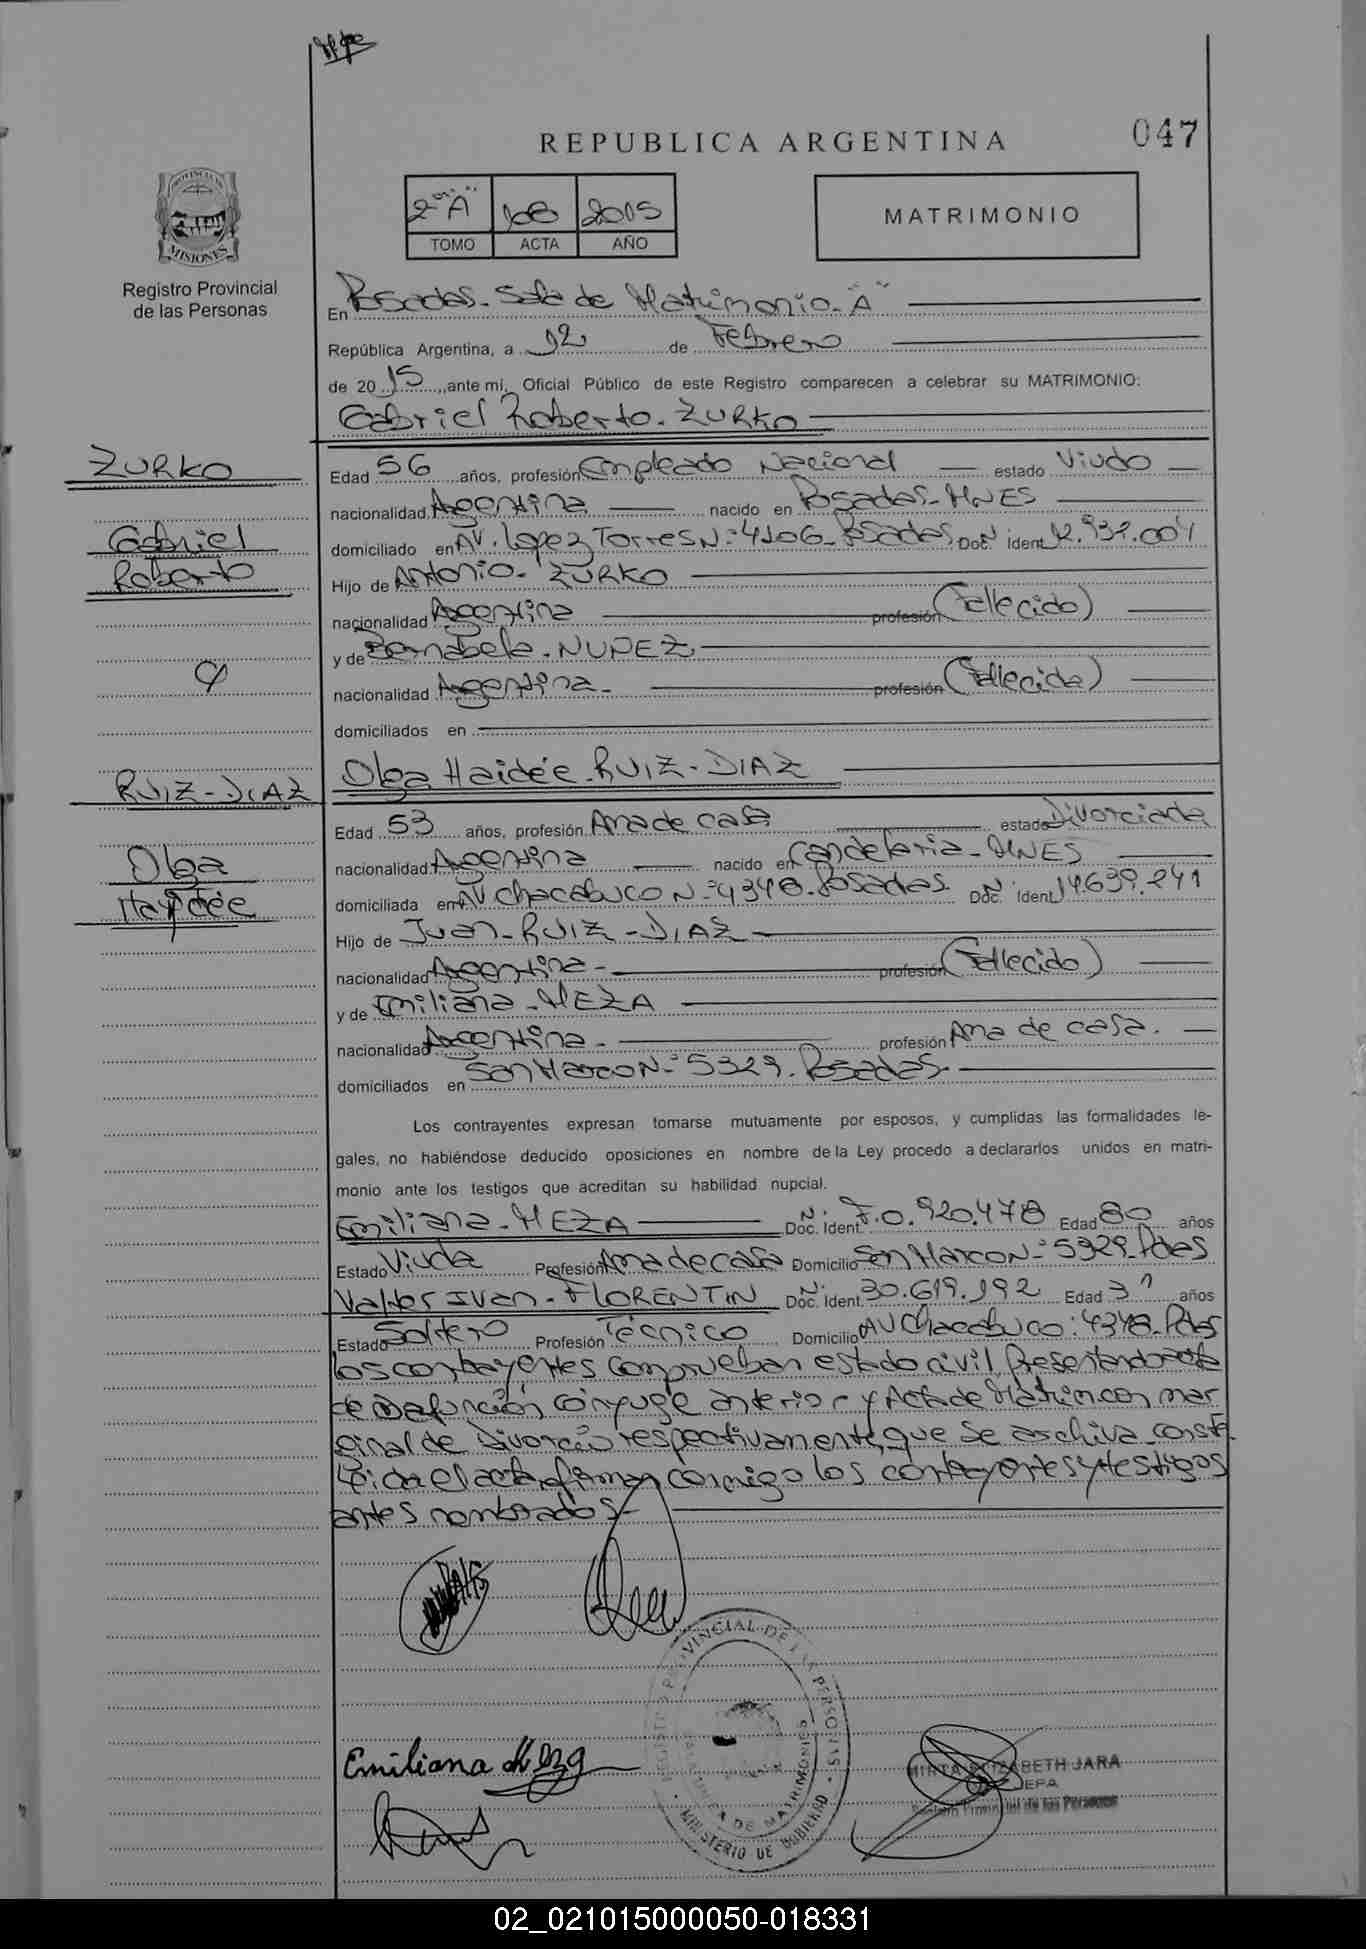 047
REPUBLICA ARGENTINA
2º "A" 108 2015
TOMO ACTA AÑO
MATRIMONIO
PROVINCIA DE
MISIONES
Registro Provincial
de las Personas
En Posadas - Sala de Matrimonio - "A"
República Argentina, a 12 de Febrero
de 2015, ante mí, Oficial Público de este Registro comparecen a celebrar su MATRIMONIO:
Gabriel Roberto - ZURKO
ZURKO
Gabriel
Roberto
Edad 56 años, profesión Empleado Nacional estado Viudo
nacionalidad Argentina nacido en Posadas - MNES
domiciliado en AV. Lopez Torres Nº 4106 - Posadas Doc. Ident Nº 12.932.004
Hijo de Antonio - ZURKO
nacionalidad Argentina profesión (Fallecido)
y de Bernabela - NUÑEZ
nacionalidad Argentina - profesión (Fallecida)
domiciliados en
Olga Haidée - RUIZ - DIAZ
RUIZ - DIAZ
Olga
Haydée
Edad 53 años, profesión Ama de casa estado Divorciada
nacionalidad Argentina nacido en Candelaria - MNES
domiciliada en AV Chacabuco Nº 4348 - Posadas Doc. Ident Nº 14.639.241
Hijo de Juan - RUIZ - DIAZ
nacionalidad Argentina - profesión (Fallecido)
y de Emiliana - MEZA
nacionalidad Argentina - profesión Ama de casa.
domiciliados en San Marco Nº 5329 - Posadas
Los contrayentes expresan tomarse mutuamente por esposos, y cumplidas las formalidades le-
gales, no habiéndose deducido oposiciones en nombre de la Ley procedo a declararlos unidos en matri-
monio ante los testigos que acreditan su habilidad nupcial.
Emiliana - MEZA Doc. Ident. Nº F.0.920.478 Edad 80 años
Estado Viuda Profesión Ama de casa Domicilio San Marco Nº 5329 - Pdas
Valter Ivan - FLORENTIN Doc. Ident. Nº 30.619.192 Edad 31 años
Estado Soltero Profesión Técnico Domicilio AV Chacabuco: 4348 - Pdas
los contrayentes comprueban estado civil, Presentando acta
de Defunción cónyuge anterior y Acta de Matrim con mar
ginal de Divorcio respectivamente, que se archiva - conste
Leida el acta, firman conmigo los contrayentes y testigos
antes nombrados -
Emiliana Meza
REGISTRO PROVINCIAL DE LAS PERSONAS
MINISTERIO DE GOBIERNO
DE MATRIMONIOS
MIRTA ELIZABETH JARA
JEFA
Registro Provincial de las Personas
02_021015000050-018331